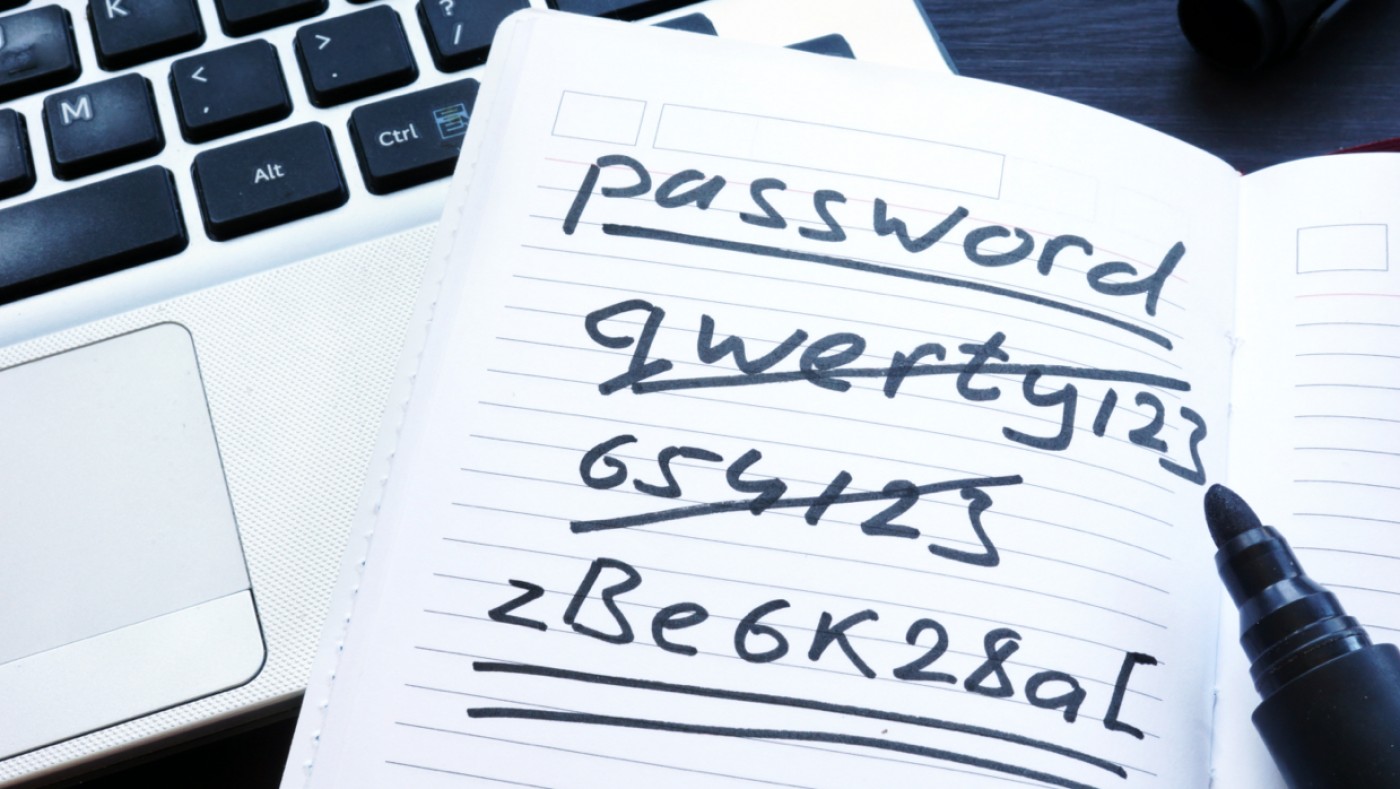 K
M
<
,
>
.
?
/
Alt
Ctrl
password
qwerty123
654123
zBe6K28a[